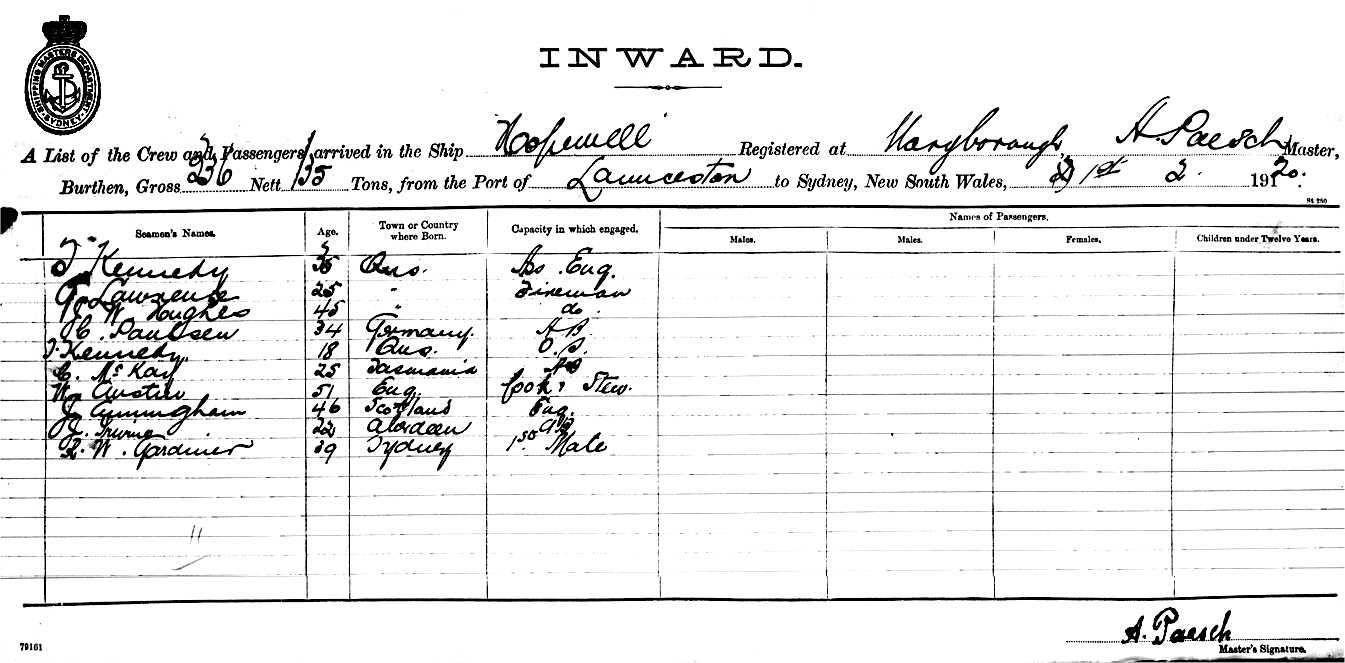 SHIPPING MASTERS DEPARTMENT SYDNEY
INWARD.
A List of the Crew and Passengers arrived in the Ship Hopewell Registered at Maryborough, A. Paesch Master,
Burthen, Gross 236 Nett 135 Tons, from the Port of Launceston to Sydney, New South Wales, 1st 2. 1920.
St 280
Seamen's Names. Age. Town or Country where Born. Capacity in which engaged. Names of Passengers.
Males. Males. Females. Children under Twelve Years.
Kennedy Aus. Eng.
Lawrence 25 " Fireman
W. Hughes 45 " do
Paulsen 34 Germany. A B.
J. Kennedy. 18 Aus. O.S.
C. McKay 25 Tasmania AB
W. Austin 51 Eng. Cook & Stew.
J. Cunningham 46 Scotland Eng.
J. Irvine 22 Aberdeen AB
R. W. Gardiner 39 Sydney 1st Mate
11
A. Paesch
Master's Signature.
79161